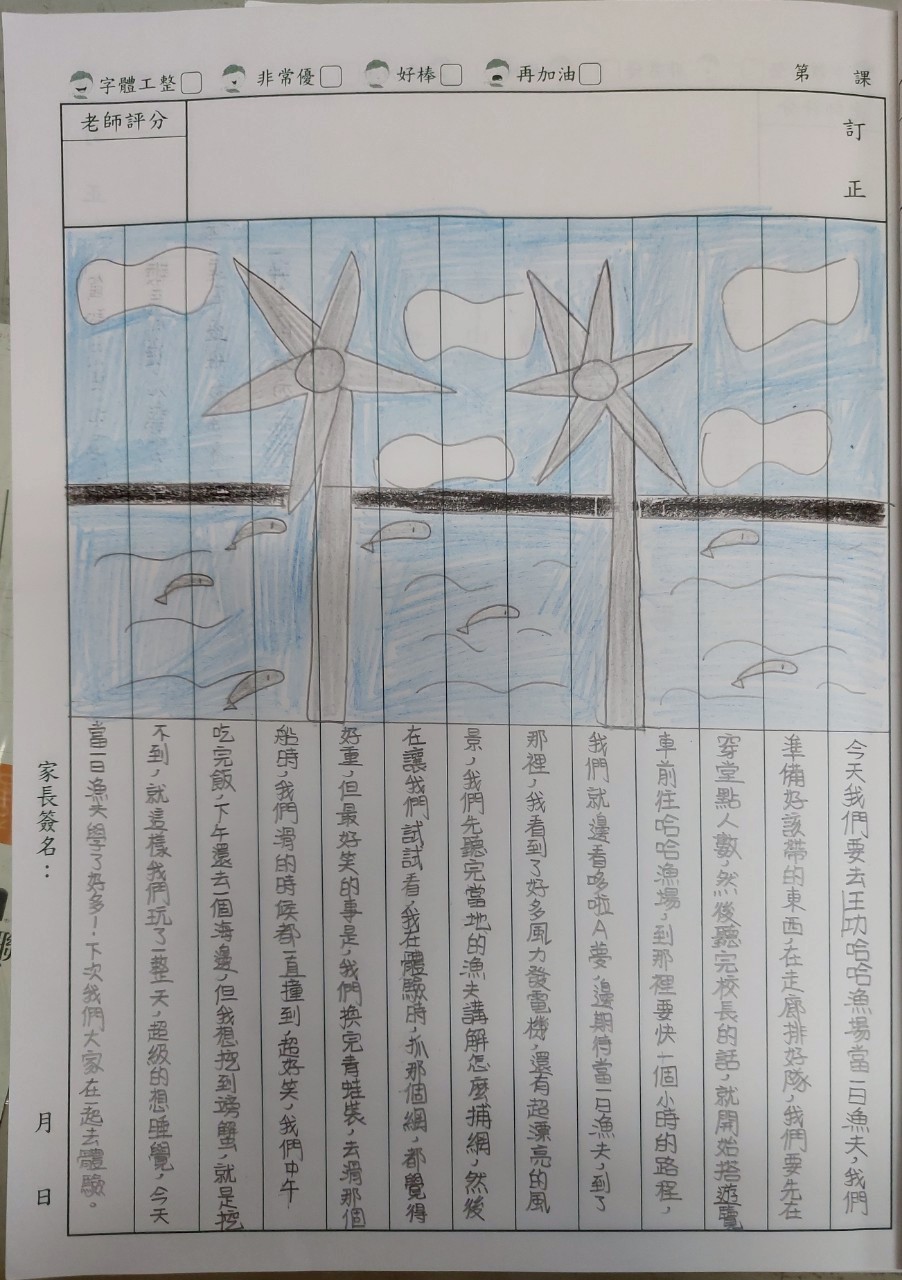 字體工整 非常優 好棒 再加油 第 課
老師評分
訂正
今天我們要去王功哈哈漁場當一日漁夫,我們
準備好該帶的東西,在走廊排好隊,我們要先在
穿堂點人數,然後聽完校長的話,就開始搭遊覽
車前往哈哈漁場,到那裡要快一個小時的路程,
我們就邊看哆啦A夢,邊期待當一日漁夫,到了
那裡,我看到了好多風力發電機,還有超漂亮的風
景,我們先聽完當地的漁夫講解怎麼捕網,然後
在讓我們試試看,我在體驗時,抓那個網,都覺得
好重,但最好笑的事是,我們換完青蛙裝,去滑那個
船時,我們滑的時候都一直撞到,超好笑,我們中午
吃完飯,下午還去一個海邊,但我想挖到螃蟹,就是挖
不到,就這樣我們玩了一整天,超級的想睡覺,今天
當一日漁夫學了好多!下次我們大家在一起去體驗。
家長簽名: 月 日